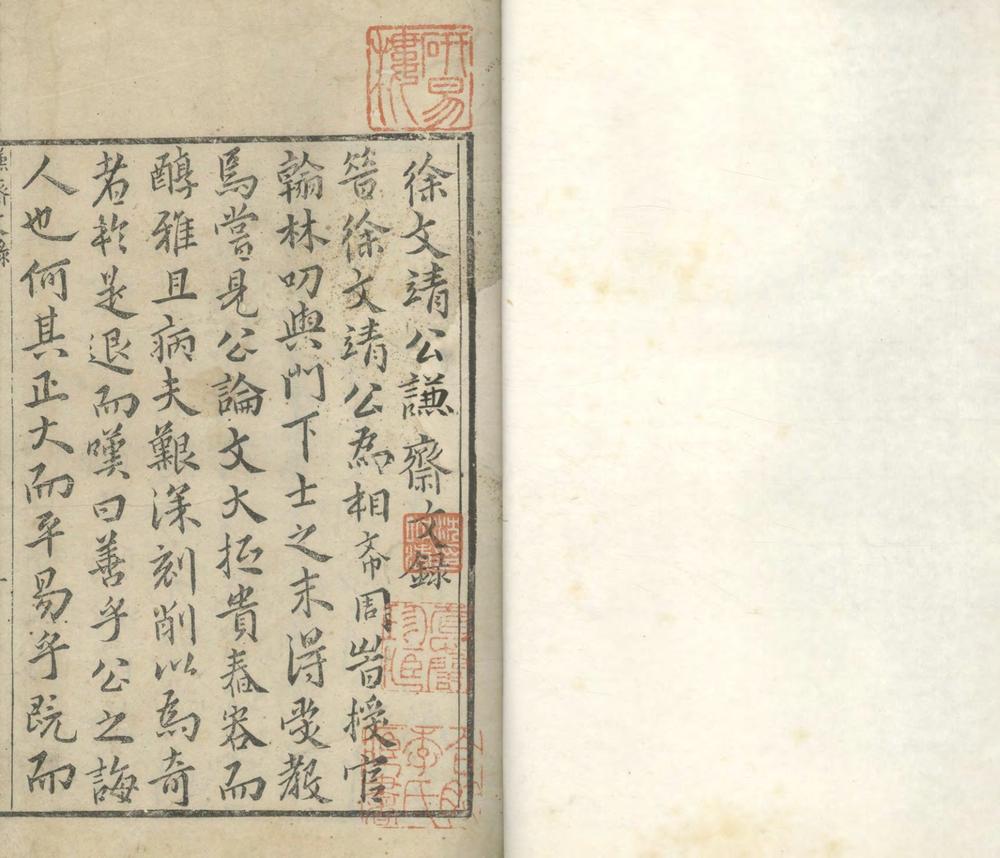 徐文靖公謙齋文錄
昝徐文靖公為相帝周時授官
翰林叨與門下士之末得受教
焉嘗見公論文大抵貴舂容而
醇雅且病夫艱深刻削以為奇
者於是退而嘆曰善乎公之誨
人也何其正大而平易乎既而
謙齋文錄
研易樓